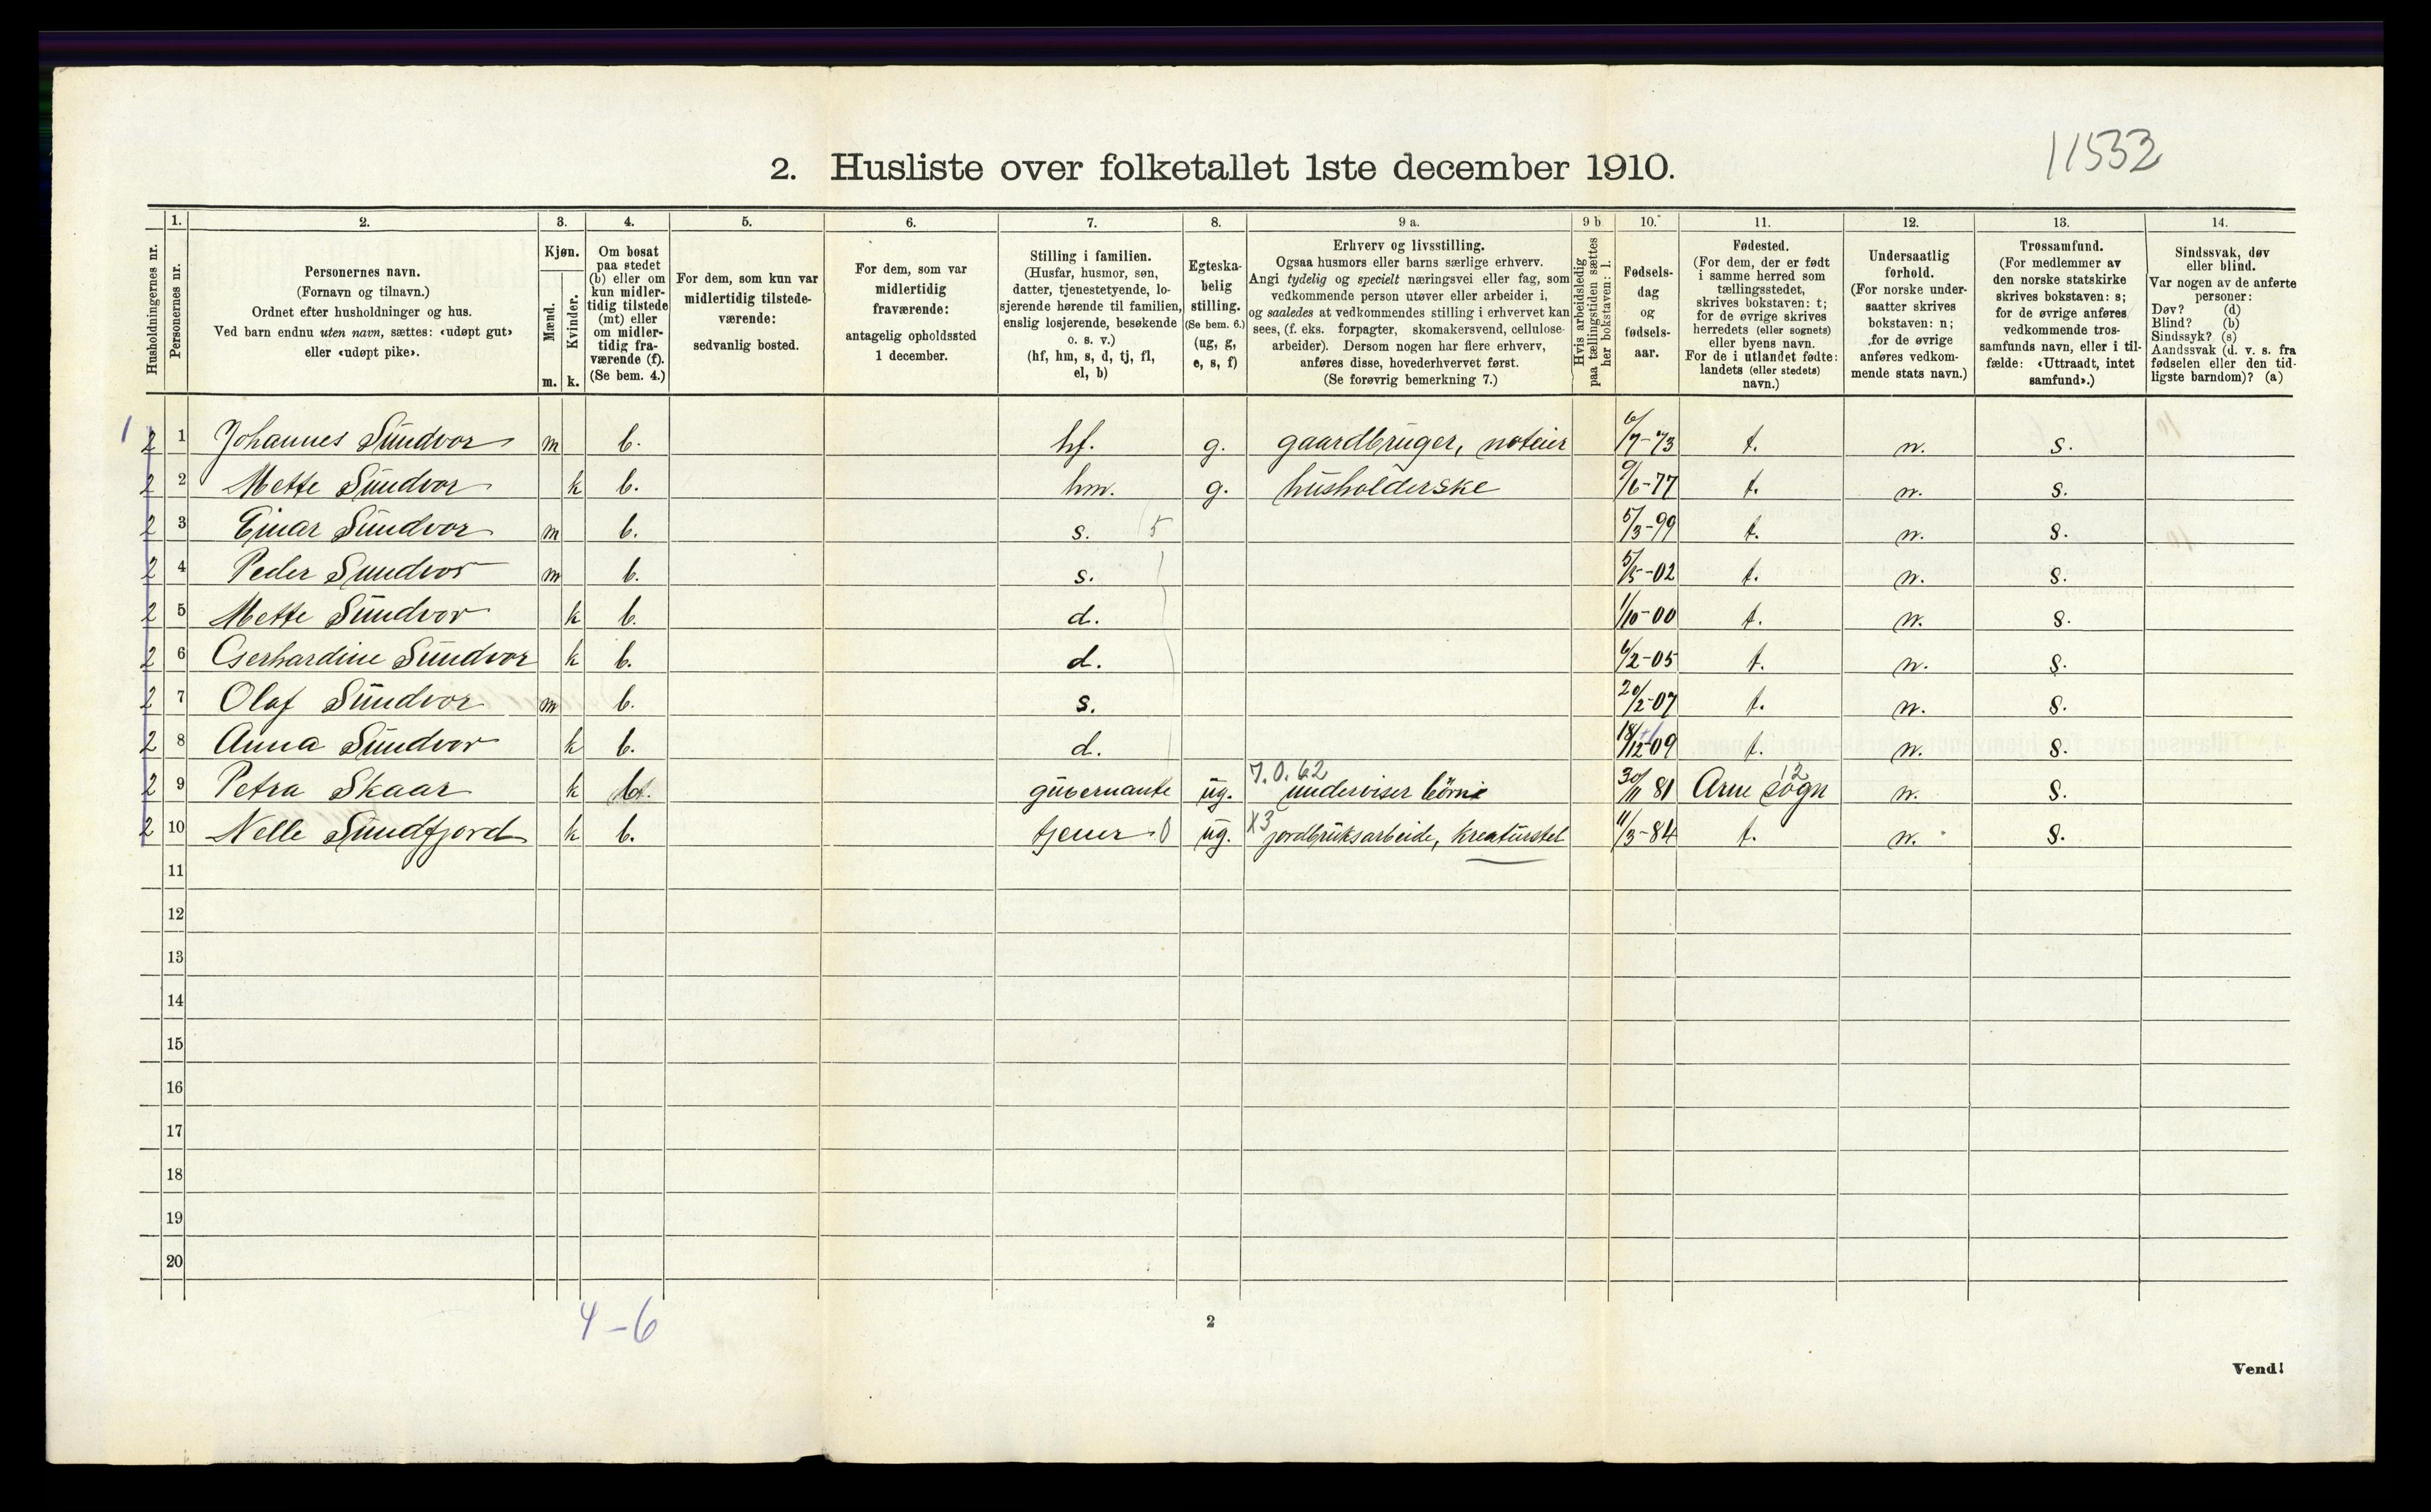 11532
2. Husliste over folketallet 1ste december 1910.
Husholdningernes nr.
1.
Personernes nr.
2.
Personernes navn.
(Fornavn og tilnavn.)
Ordnet efter husholdninger og hus.
Ved barn endnu uten navn, sættes: «udøpt gut»
eller «udøpt pike».
3.
Kjøn.
Mænd.
Kvinder.
m. k.
4.
Om bosat
paa stedet
(b) eller om
kun midler-
tidig tilstede
(mt) eller
om midler-
tidig fra-
værende (f).
(Se bem. 4.)
5.
For dem, som kun var
midlertidig tilstede-
værende:
sedvanlig bosted.
6.
For dem, som var
midlertidig
fraværende:
antagelig opholdssted
1 december.
7.
Stilling i familien.
(Husfar, husmor, søn,
datter, tjenestetyende, lo-
sjerende hørende til familien,
enslig losjerende, besøkende
o. s. v.)
(hf, hm, s, d, tj, fl,
el, b)
8.
Egteska-
belig
stilling.
(Se bem. 6.)
(ug, g,
e, s, f)
9 a.
Erhverv og livsstilling.
Ogsaa husmors eller barns særlige erhverv.
Angi tydelig og specielt næringsvei eller fag, som
vedkommende person utøver eller arbeider i,
og saaledes at vedkommendes stilling i erhvervet kan
sees, (f. eks. forpagter, skomakersvend, cellulose-
arbeider). Dersom nogen har flere erhverv,
anføres disse, hovederhvervet først.
(Se forøvrig bemerkning 7.)
9 b
Hvis arbeidsledig
paa tællingstiden sættes
her bokstaven: l.
10.
Fødsels-
dag
og
fødsels-
aar.
11.
Fødested.
(For dem, der er født
i samme herred som
tællingsstedet,
skrives bokstaven: t;
for de øvrige skrives
herredets (eller sognets)
eller byens navn.
For de i utlandet fødte:
landets (eller stedets)
navn.)
12.
Undersaatlig
forhold.
(For norske under-
saatter skrives
bokstaven: n;
for de øvrige
anføres vedkom-
mende stats navn.)
13.
Trossamfund.
(For medlemmer av
den norske statskirke
skrives bokstaven: s;
for de øvrige anføres
vedkommende tros-
samfunds navn, eller i til-
fælde: «Uttraadt, intet
samfund».)
14.
Sindssvak, døv
eller blind.
Var nogen av de anførte
personer:
Døv? (d)
Blind? (b)
Sindssyk? (s)
Aandssvak (d. v. s. fra
fødselen eller den tid-
ligste barndom)? (a)
1 2 1 Johannes Sundvor m b. hf. g. gaardbruger, noteier 6/7-73 t. n. s.
2 2 Mette Sundvor k b. hm. g. husholderske 9/6-77 t. n. s.
2 3 Einar Sundvor m b. s. 5 5/3-99 t. n. s.
2 4 Peder Sundvor m b. s. 5/5-02 t. n. s.
2 5 Mette Sundvor k b. d. 1/10-00 t. n. s.
2 6 Gerhardine Sundvor k b. d. 6/2-05 t. n. s.
2 7 Olaf Sundvor m b. s. 20/2-07 t. n. s.
2 8 Anna Sundvor k b. d. 18/12-09 t. n. s.
7.0.62 12
2 9 Petra Skaar k guvernante ug. underviser børn 30/11 81 Arne sogn n. s.
2 10 Nelle Sundfjord k b. tjener 0 ug. X3 jordbruksarbeide, kreaturstel 11/3-84 t. n. s.
11
12
13
14
15
16
17
18
19
20
4-6
2
Vend!